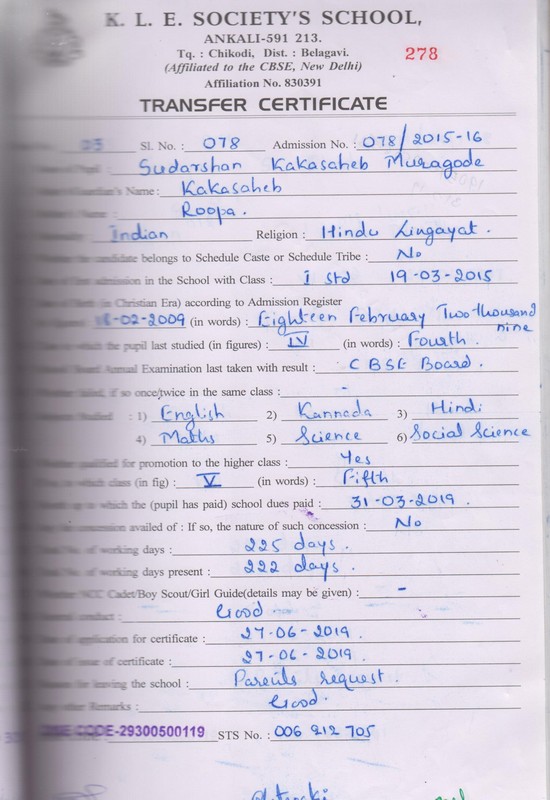 K. L. E. SOCIETY'S SCHOOL,
ANKALI-591 213.
Tq. : Chikodi, Dist. : Belagavi.
278
(Affiliated to the CBSE, New Delhi)
Affiliation No. 830391
TRANSFER CERTIFICATE
Sl. No. : 078 Admission No. : 078/2015-16
Sudarshan Kakasaheb Muragode
Name : Kakasaheb
Name : Roopa.
Indian Religion : Hindu Lingayat.
candidate belongs to Schedule Caste or Schedule Tribe : No
admission in the School with Class : I Std 19-03-2015
Christian Era) according to Admission Register
18-02-2009 (in words) : Eighteen February Two thousand nine
which the pupil last studied (in figures) : IV (in words) : Fourth.
Annual Examination last taken with result : CBSE Board.
if so once/twice in the same class : -
Studied : 1) English 2) Kannada 3) Hindi
4) Maths 5) Science 6) Social Science
qualified for promotion to the higher class : Yes
class (in fig) : V (in words) : Fifth
which the (pupil has paid) school dues paid : 31-03-2019.
concession availed of : If so, the nature of such concession : No
No. of working days : 225 days.
of working days present : 222 days.
NCC Cadet/Boy Scout/Girl Guide(details may be given) : -
conduct : Good
application for certificate : 27-06-2019.
issue of certificate : 27-06-2019.
for leaving the school : Parents request.
other Remarks : Good.
DISE CODE-29300500119 STS No. : 006 212 705